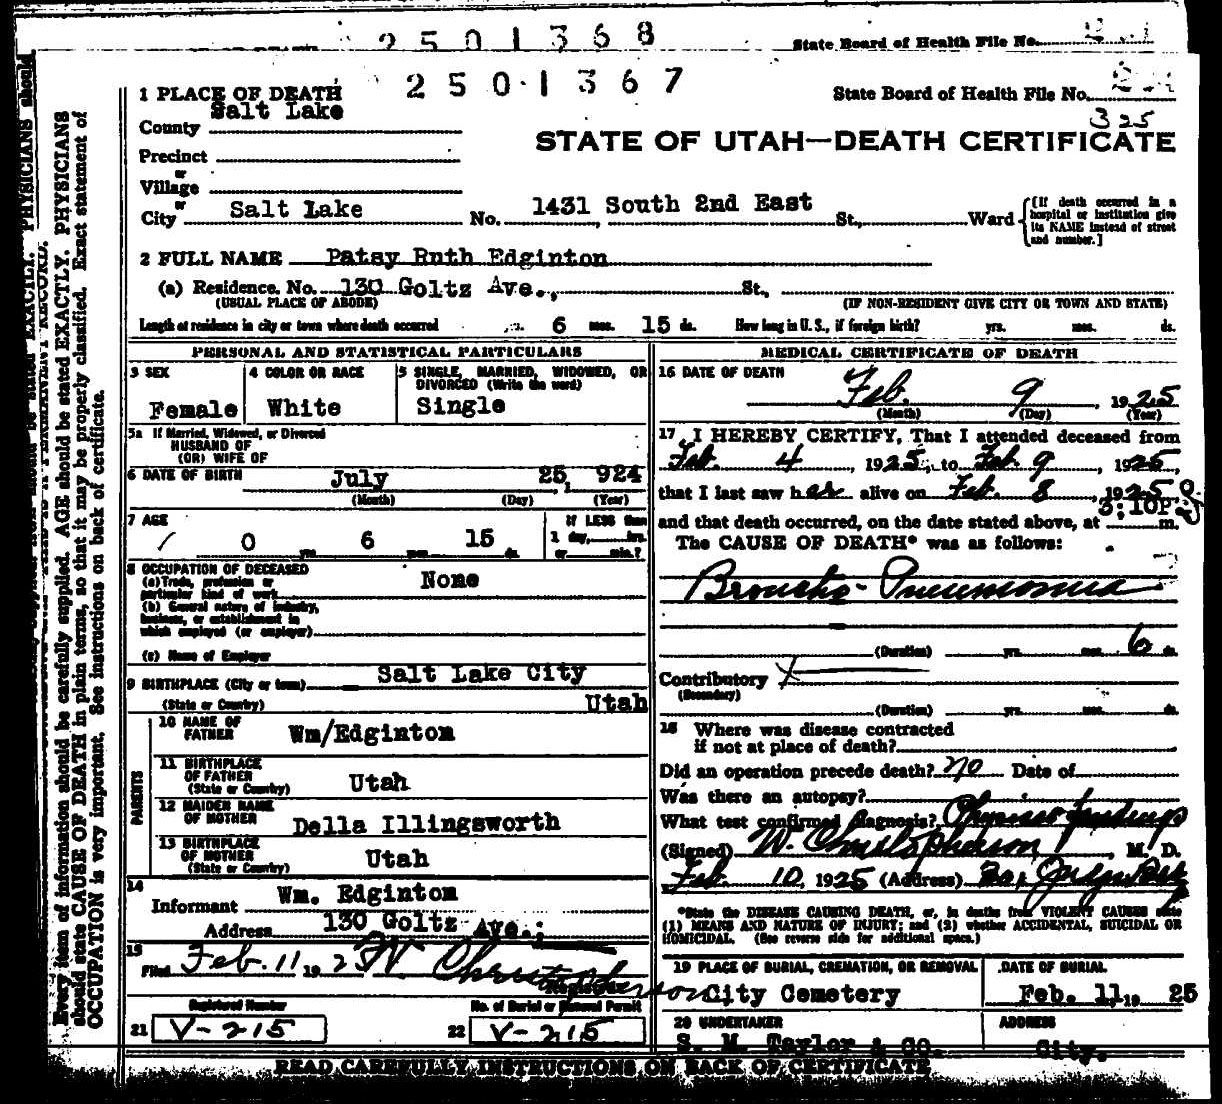 2 5 0 1 3 6 8
State Board of Health File No.
2 5 0 1 3 6 7
State Board of Health File No.
325
1 PLACE OF DEATH
Salt Lake
County
STATE OF UTAH—DEATH CERTIFICATE
Precinct
or
Village
or
City Salt Lake No. 1431 South 2nd East St., Ward
[If death occurred in a hospital or institution give its NAME instead of street and number.]
2 FULL NAME Patsy Ruth Edginton
(a) Residence. No. 130 Goltz Ave., St.,
(USUAL PLACE OF ABODE) (IF NON-RESIDENT GIVE CITY OR TOWN AND STATE)
Length of residence in city or town where death occurred yrs. 6 mos. 15 ds. How long in U. S., if foreign birth? yrs. mos. ds.
PERSONAL AND STATISTICAL PARTICULARS
3 SEX
Female
4 COLOR OR RACE
White
5 SINGLE, MARRIED, WIDOWED, OR
DIVORCED (Write the word)
Single
5a If Married, Widowed, or Divorced
HUSBAND OF
(OR) WIFE OF
6 DATE OF BIRTH July 25, 924
(Month) (Day) (Year)
7 AGE
0 yrs. 6 mos. 15 ds.
If LESS than
1 day, hrs.
or min.?
8 OCCUPATION OF DECEASED
(a) Trade, profession or
particular kind of work None
(b) General nature of industry,
business, or establishment in
which employed (or employer)
(c) Name of Employer
9 BIRTHPLACE (City or town) Salt Lake City
(State or Country) Utah
PARENTS
10 NAME OF
FATHER Wm/Edginton
11 BIRTHPLACE
OF FATHER
(State or Country) Utah
12 MAIDEN NAME
OF MOTHER Della Illingsworth
13 BIRTHPLACE
OF MOTHER
(State or Country) Utah
14
Informant Wm. Edginton
Address 130 Goltz Ave.;
15
Filed Feb. 11 1925 W. Christopherson
Registered Number No. of Burial or Removal Permit
21 V-215 22 V-215
MEDICAL CERTIFICATE OF DEATH
16 DATE OF DEATH
Feb. 9, 1925
(Month) (Day) (Year)
17 I HEREBY CERTIFY, That I attended deceased from
Feb. 4, 1925, to Feb. 9, 1925,
that I last saw her alive on Feb. 8, 1925
and that death occurred, on the date stated above, at 3:10P m.
The CAUSE OF DEATH* was as follows:
Broncho-Pneumonia
(Duration) yrs. mos. 6 ds.
Contributory
(Secondary)
(Duration) yrs. mos. ds.
18 Where was disease contracted
if not at place of death?
Did an operation precede death? no Date of
Was there an autopsy?
What test confirmed diagnosis?
(Signed) W. Christopherson, M. D.
Feb. 10, 1925 (Address)
*State the DISEASE CAUSING DEATH, or, in deaths from VIOLENT CAUSES state
(1) MEANS AND NATURE OF INJURY; and (2) whether ACCIDENTAL, SUICIDAL OR
HOMICIDAL. (See reverse side for additional space.)
19 PLACE OF BURIAL, CREMATION, OR REMOVAL
City Cemetery
DATE OF BURIAL
Feb. 11, 19 25
20 UNDERTAKER
S. M. Taylor & Co.
ADDRESS
City.
READ CAREFULLY INSTRUCTIONS ON BACK OF CERTIFICATE
Every item of information should be carefully supplied. AGE should be stated EXACTLY. PHYSICIANS
should state CAUSE OF DEATH in plain terms, so that it may be properly classified. Exact statement of
OCCUPATION is very important. See instructions on back of certificate.